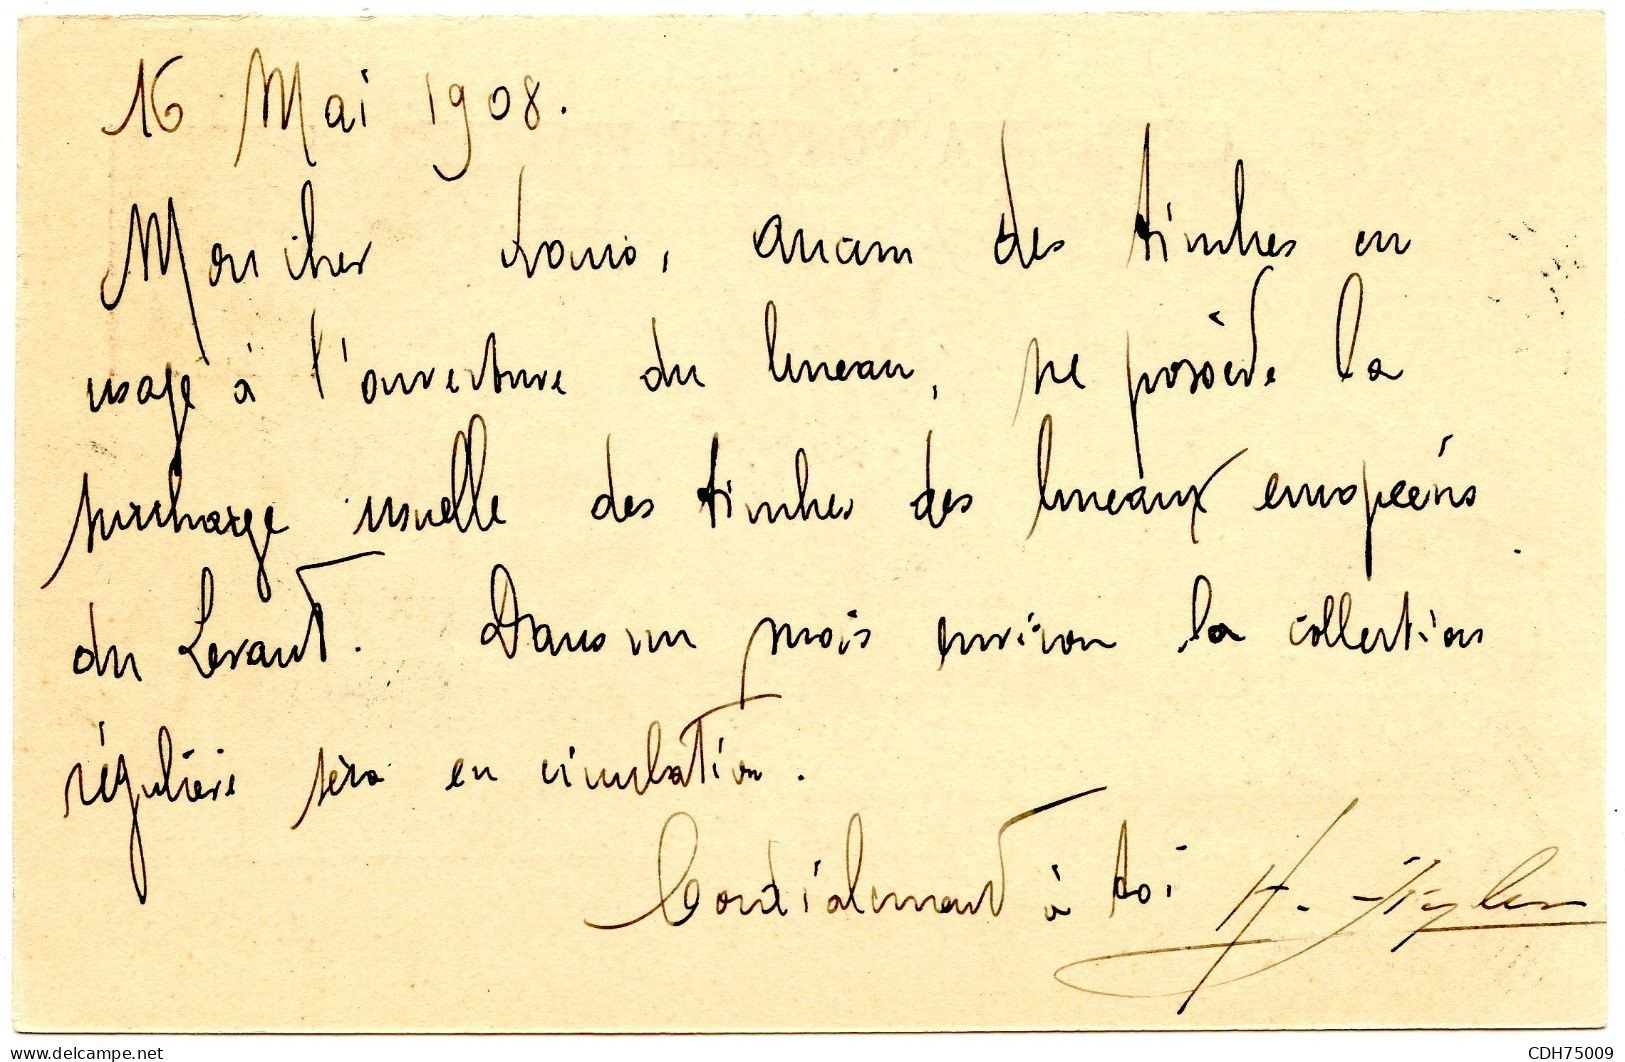 16 Mai 1908.
Mon cher Louis, aucun des timbres en
usage à l'ouverture du bureau, ne possède la
surcharge usuelle des timbres des bureaux européens
du Levant. Dans un mois environ la collection
régulière sera en circulation.
Cordialement à toi H.
www.delcampe.net
CDH75009